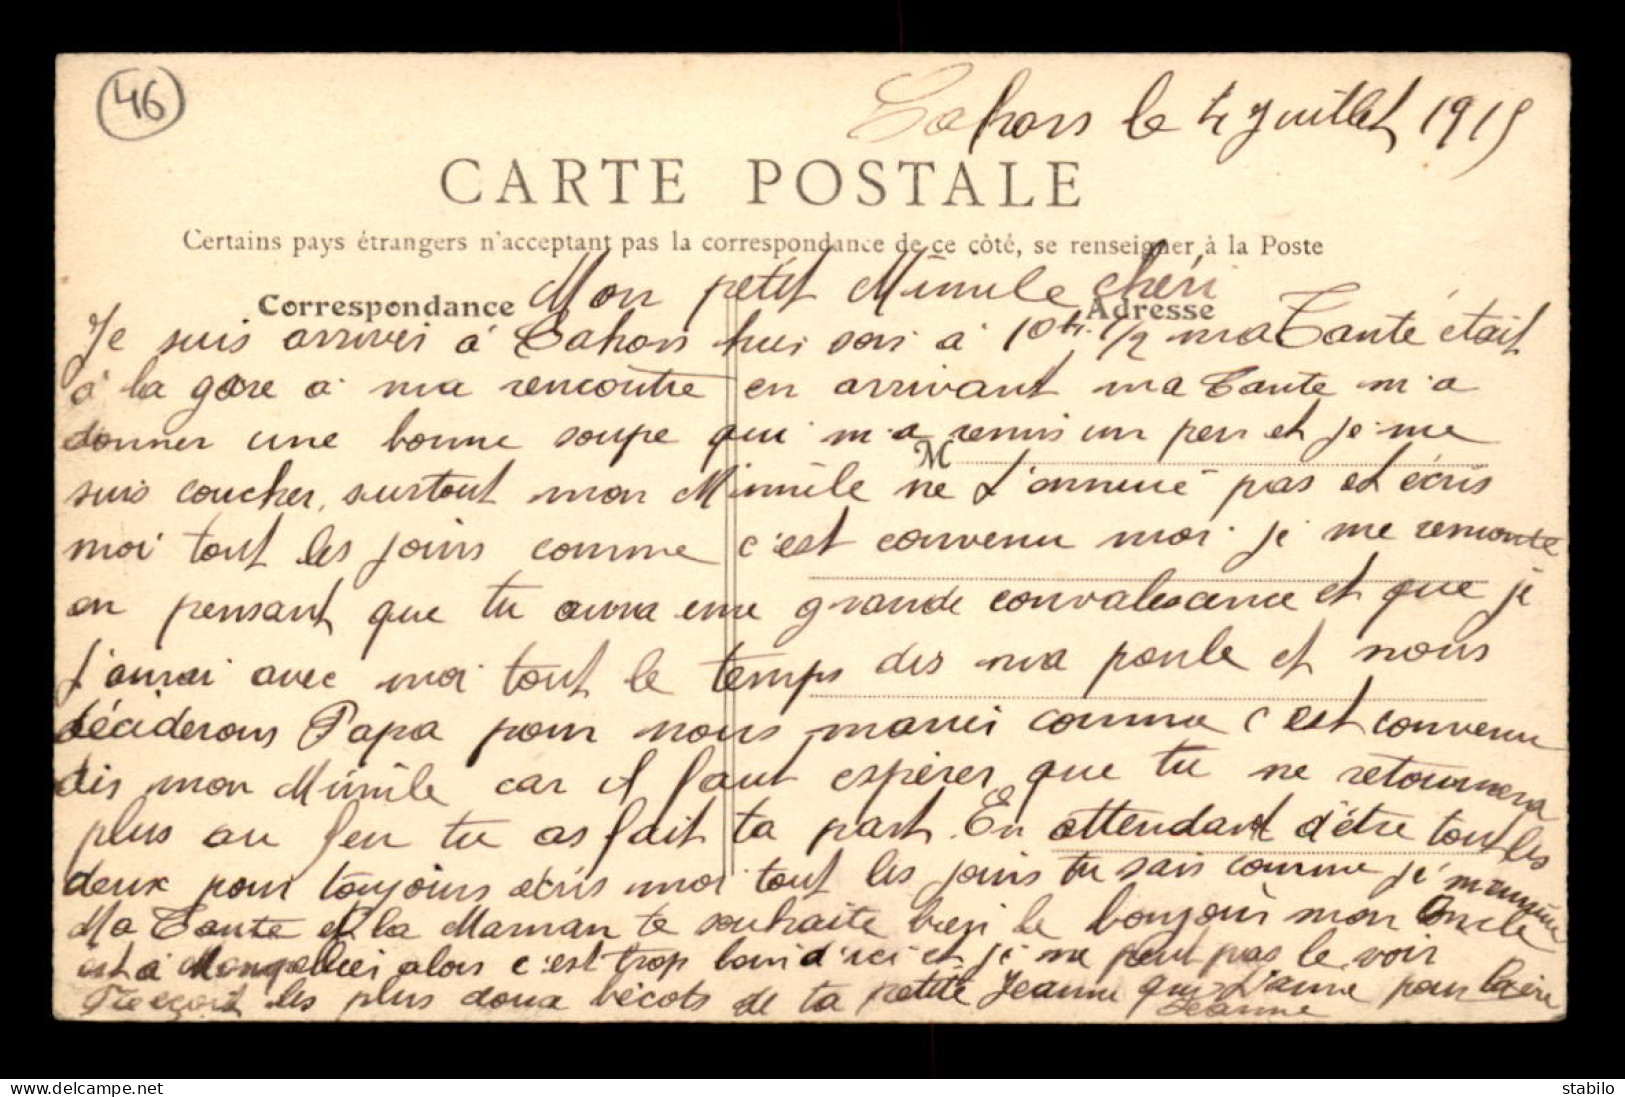 46
Cahors le 4 Juillet 1915
CARTE POSTALE
Certains pays étrangers n'acceptant pas la correspondance de ce côté, se renseigner à la Poste
Mon petit Mimile chéri
Correspondance Adresse
Je suis arriver à Cahors hier soir à 10h. 1/2 ma Tante était
à la gare a ma rencontre en arrivant ma Tante m'a
donner une bonne soupe qui m'a remis un peu et je me
M
suis coucher, surtout mon Mimile ne t'ennuie pas et écris
moi tout les jours comme c'est convenu moi je me remonte
en pensant que tu aura une grande convalescence et que je
t'aurai avec moi tout le temps dis ma poule et nous
déciderons Papa pour nous marier comme c'est convenu
dis mon Mimile car il faut espérer que tu ne retournera
plus au feu tu as fait ta part. En attendant d'être tout les
deux pour toujours écris moi tout les jours tu sais comme je m'ennuie
Ma Tante et la Maman te souhaite bien le bonjour mon Oncle
est à Montpellier alors c'est trop loin d'ici et je ne peut pas le voir
Reçoit les plus doux bécots de ta petite Jeanne qui t'aime pour la vie
Jeanne
delcampe.net
stabilo